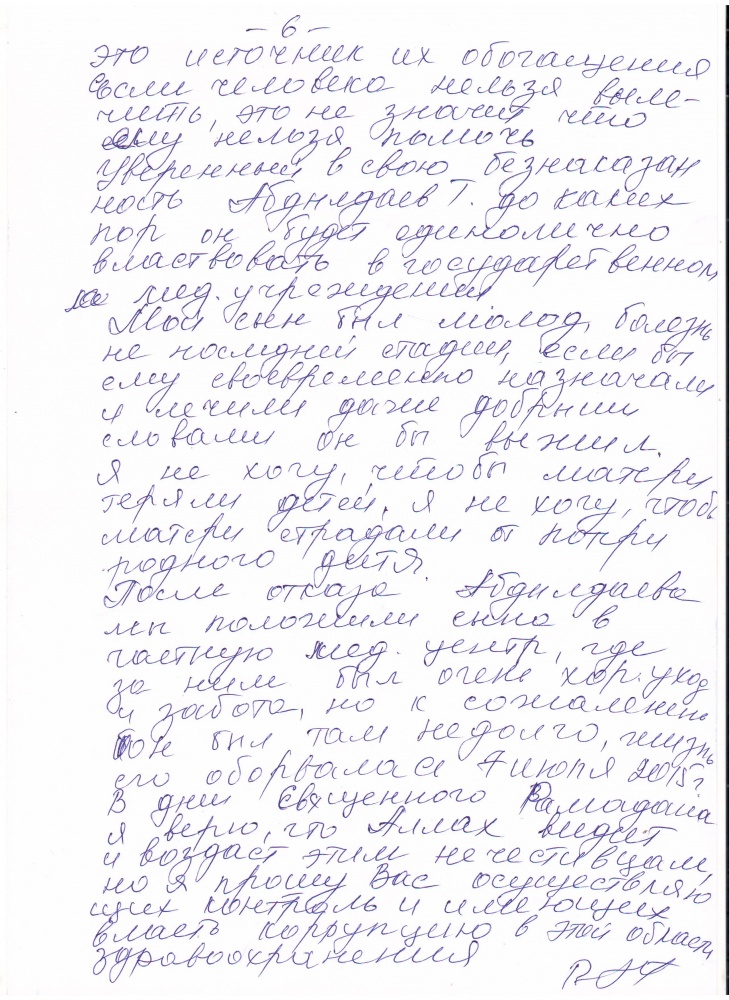 - 6 -
это источник их обогащения
если человека нельзя выле-
чить, это не значит что
ему нельзя помочь
Уверенный в свою безнаказан
ность Абдилдаев Т. до каких
пор он будет единолично
властвовать в государственном
мед. учреждении
Мой сын был молод, болезнь
не последней стадии, если бы
ему своевременно назначали
и лечили даже добрыми
словами он бы выжил.
Я не хочу, чтобы матери
теряли детей, я не хочу, чтобы
матери страдали от потери
родного дитя.
После отказа Абдилдаева
мы положили сына в
частную мед. центр, где
за ним был очень хор. уход
и забота, но к сожалению
он был там недолго, жизнь
его оборвалась 7 июля 2015 г
В дни Священного Рамадана
я верю, что Аллах видит
и воздаст этим нечестивцам,
но я прошу Вас осуществляю
щих контроль и имеющих
власть коррупцию в этой области
здравоохранения